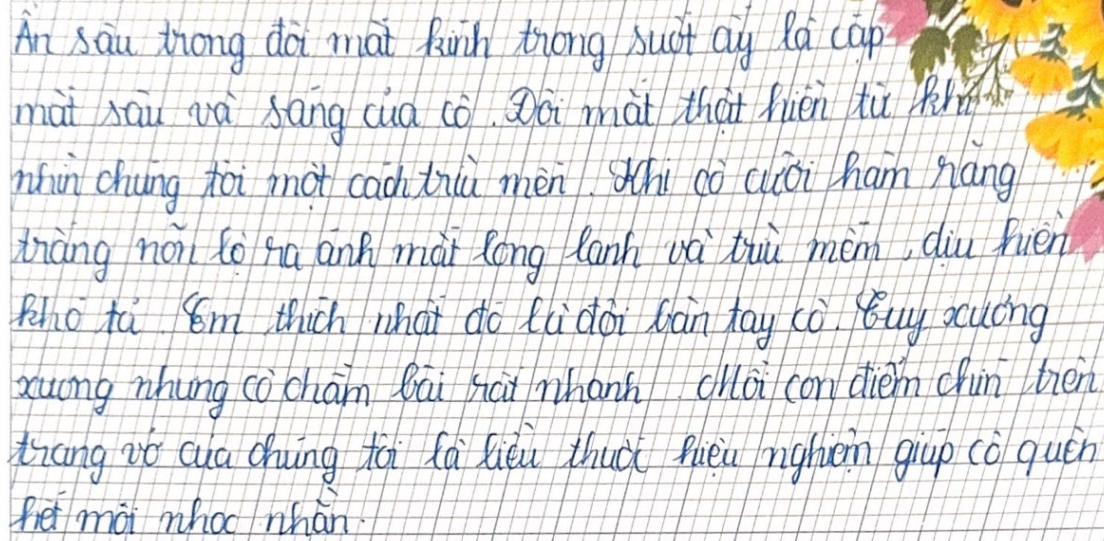 Ẩn sâu trong đôi mắt kính trong suốt ấy là cặp
mắt sâu và sáng của cô. Đôi mắt thật hiền từ khi
nhìn chúng tôi một cách trìu mến. Khi cô cười hàm răng
trắng nõn lộ ra ánh mắt lóng lanh và trìu mếm, dịu hiền
khó tả. Em thích nhất đó là đôi bàn tay cô. Tuy xương
xương nhưng cô chấm bài rất nhanh. Mỗi con điểm chín trên
trang vở của chúng tôi là liều thuốc hiệu nghiệm giúp cô quên
hết mỏi nhọc nhằn.